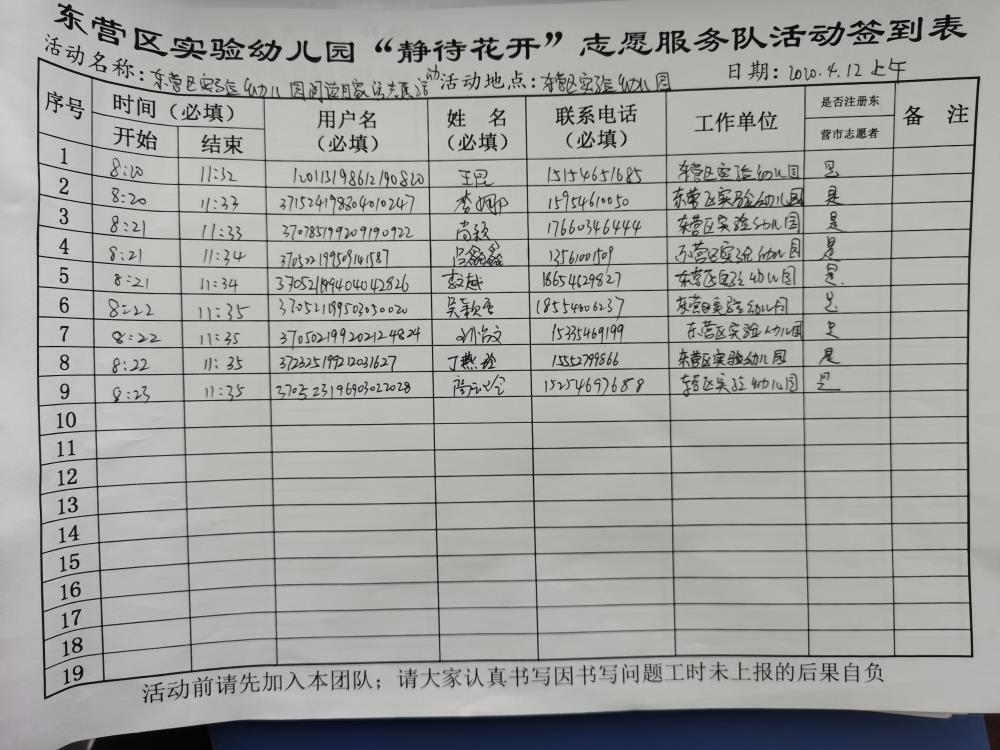 东营区实验幼儿园“静待花开”志愿服务队活动签到表
活动名称：东营区实验幼儿园 活动地点：东营区实验幼儿园 日期：2020.4.12上午
序号 时间（必填） 用户名（必填） 姓 名（必填） 联系电话（必填） 工作单位 是否注册东营市志愿者 备 注
开始 结束
1 8:20 11:32 120113198612190820 王昆 15154651685 东营区实验幼儿园 是
2 8:20 11:33 371524198804010247 李娜 15954610050 东营区实验幼儿园 是
3 8:21 11:33 370785199209190922 尚颖 17660346444 东营区实验幼儿园 是
4 8:21 11:34 13561001509 东营区实验幼儿园 是
5 8:21 11:34 18654629827 东营区实验幼儿园 是
6 8:22 11:35 东营区实验幼儿园 是
7 8:22 11:35 370502199202124824 15235469199 东营区实验幼儿园 是
8 8:22 11:35 372325199212031627 丁燕玲 15552799866 东营区实验幼儿园 是
9 8:23 11:35 370523196903022028 15254697688 东营区实验幼儿园 是
10
11
12
13
14
15
16
17
18
19
活动前请先加入本团队；请大家认真书写因书写问题工时未上报的后果自负